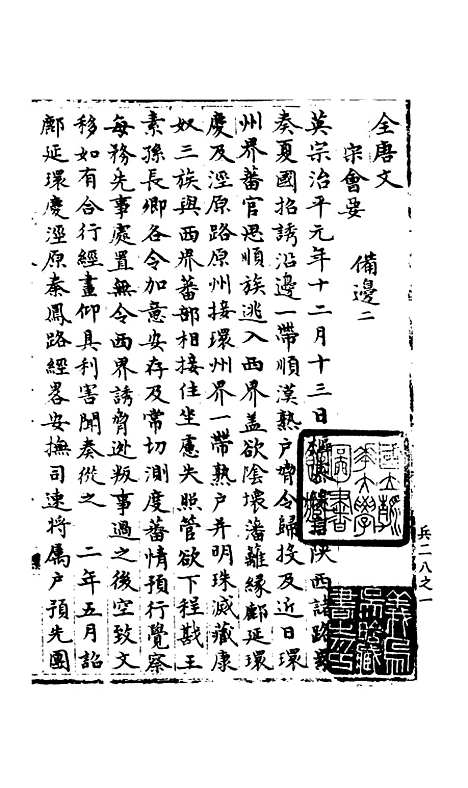 全唐文
宋會要
備邊二
英宗治平元年十二月十三日樞密院言陝西諸路
奏夏國招誘沿邊一帶順漢熟户脅令歸投及近日環
州界蕃官思順族逃入西界盖欲陰壊藩籬緣鄜延環
慶及涇原路原州接環州界一帶熟户并明珠滅藏康
奴三族與西界蕃部相接住坐慮失照管欲下程戡王
素孫長卿各令加意安存及常切測度蕃情預行覺察
每務先事處置無令西界誘脅逃叛事過之後空致文
移如有合行經畫仰具利害聞奏從之 二年五月詔
鄜延環慶涇原秦鳳路經畧安撫司速將属户預先團
兵二八之一